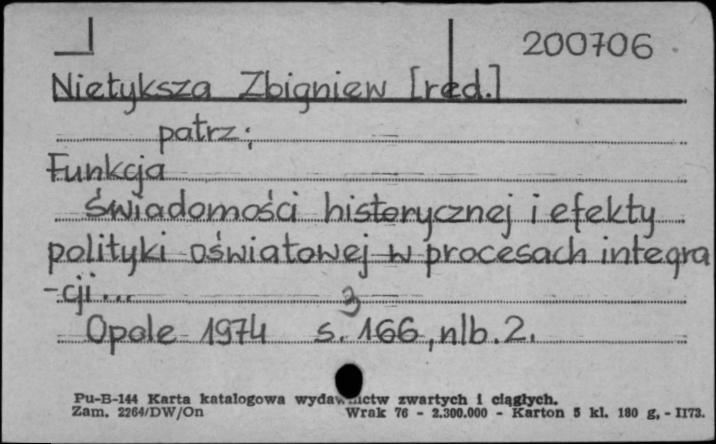 200706
Nietyksza Zbigniew [red.]
patrz:
Funkcja
świadomości historycznej i efekty
polityki oświatowej w procesach integra
-cji...
3
Opole 1974 s. 166, nlb. 2.
Pu-B-144 Karta katalogowa wydawnictw zwartych i ciągłych.
Zam. 2264/DW/On Wrak 76 - 2.300.000 - Karton 5 kl. 180 g, - II73.